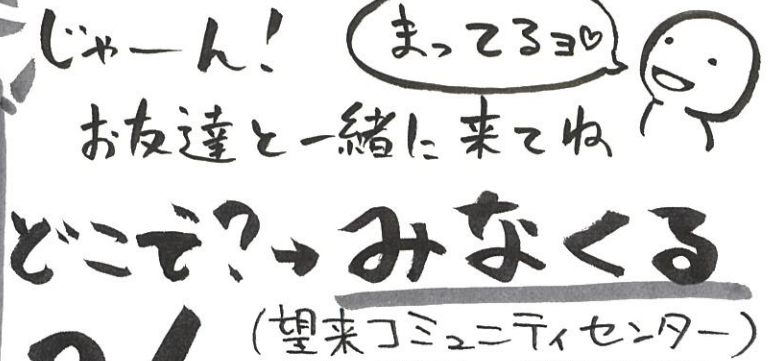 じゃーん!
まってるヨ♡
お友達と一緒に来てね
どこで?→みなくる
(望来コミュニティセンター)